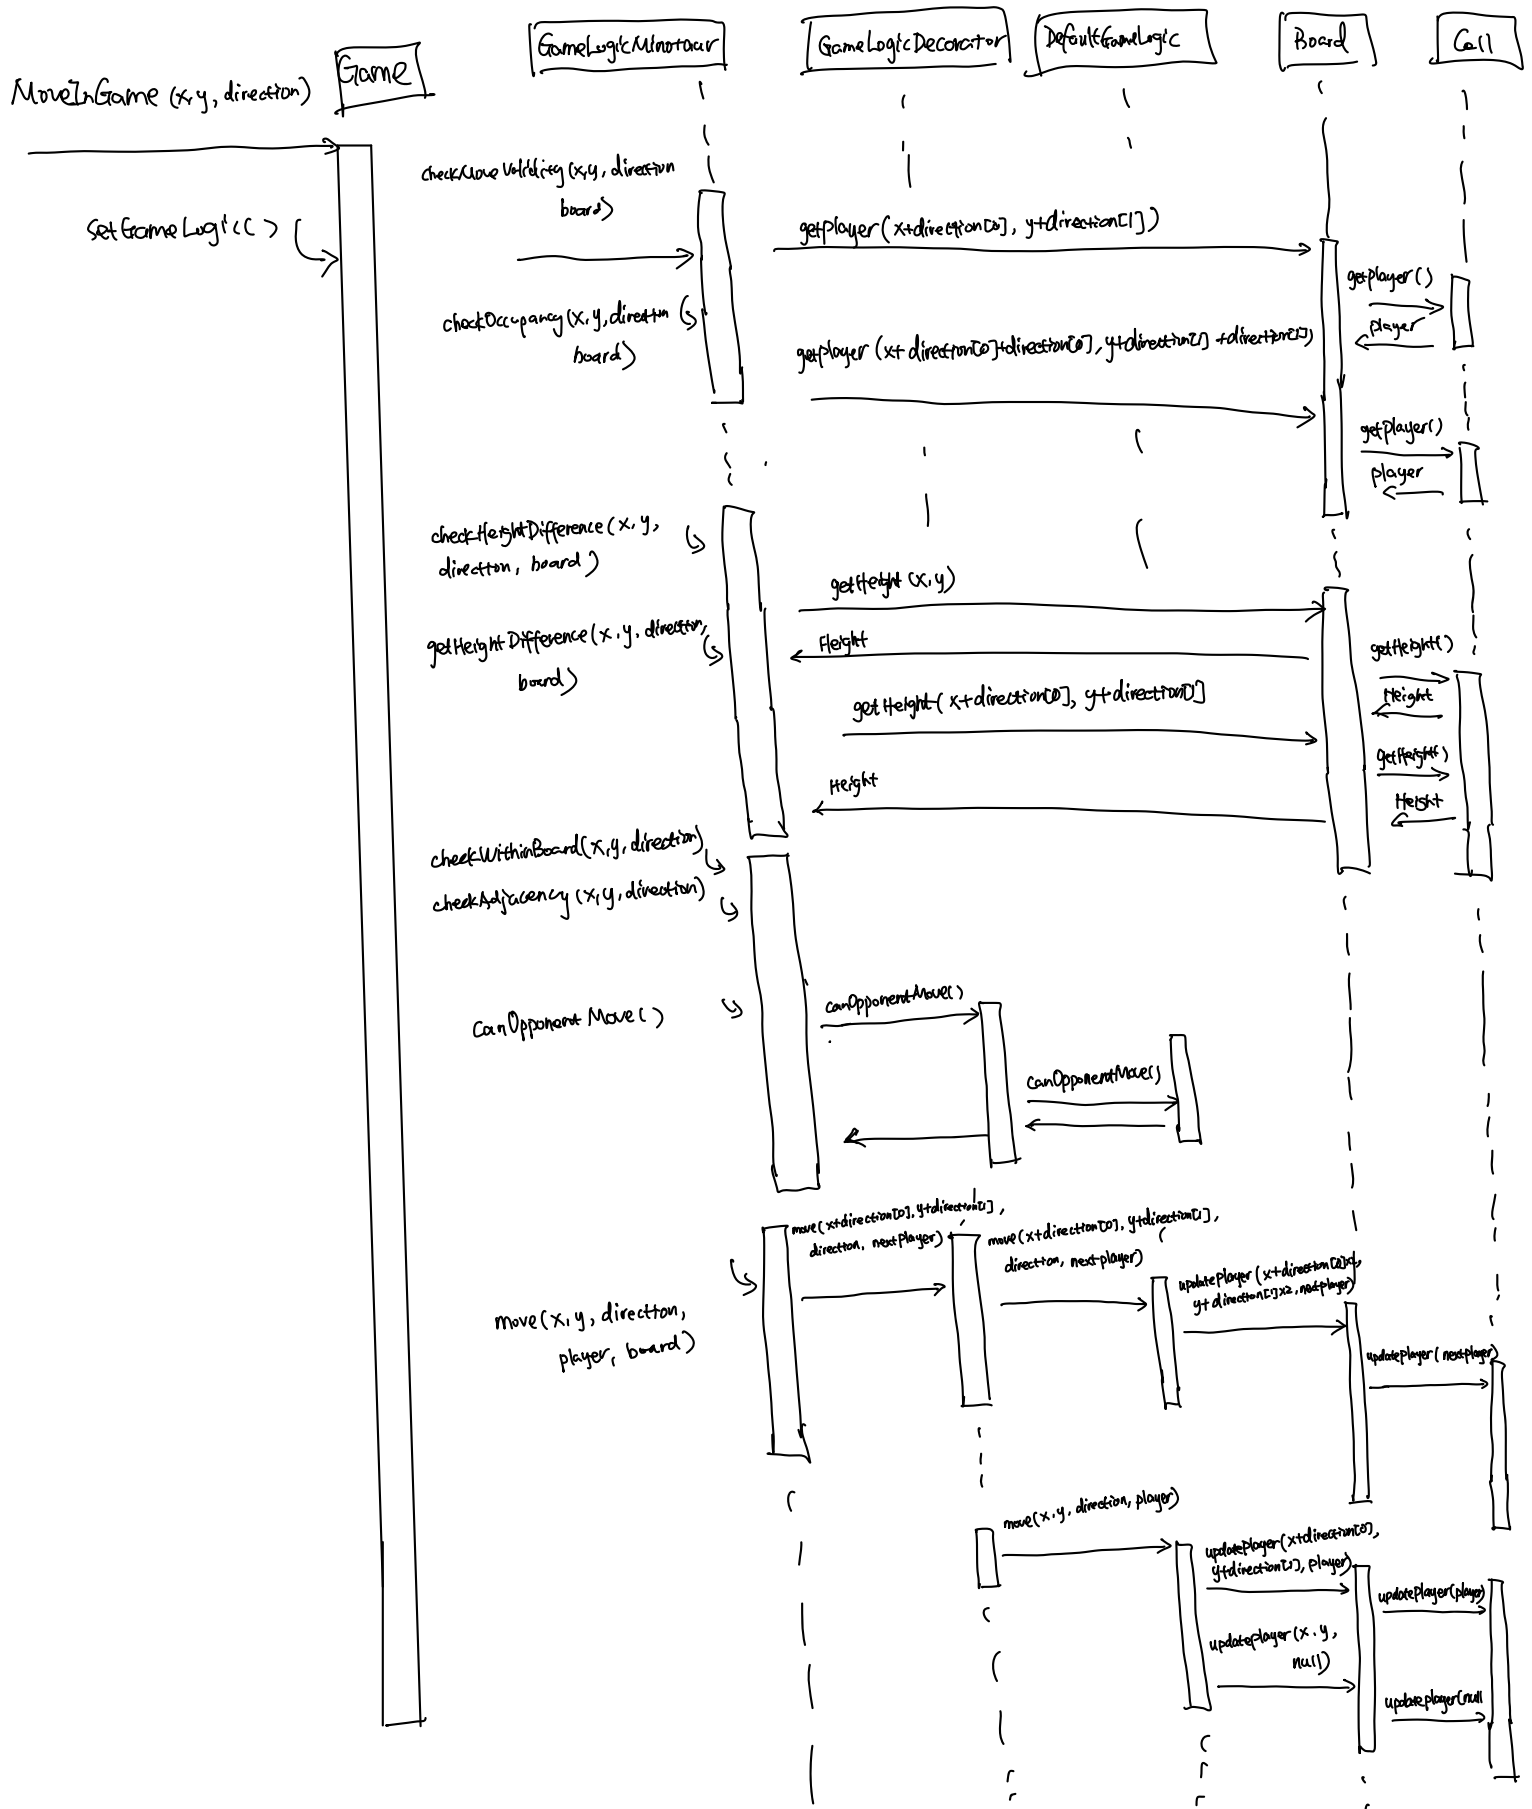 GameLogicMinotaur
GameLogicDecorator
DefaultGameLogic
Board
Cell
Game
MoveInGame (x,y, direction)
checkMoveValidity (x,y, direction
board)
setGameLogic( )
getplayer ( x+direction[0], y+direction[1] )
getplayer ( )
player
checkOccupancy (x, y, direction
board)
getplayer (x+ direction[0]+direction[0], y+direction[1] +direction[1])
getplayer()
player
checkHeightDifference ( x, y,
direction, board )
getHeight (x, y)
getHeightDifference ( x, y, direction,
board )
Height
getHeight()
Height
getHeight ( x+direction[0], y+direction[1]
getHeight()
Height
Height
checkWithinBoard (x,y, direction)
checkAdjacency (x,y, direction)
canOpponentMove ( )
canOpponentMove( )
canOpponentMove()
move( x+direction[0], y+direction[1],
direction, nextplayer)
move ( x+direction[0], y+direction[1],
direction, nextplayer)
updatePlayer ( x+direction[0]x2,
y+ direction[1]x2, nextplayer)
move(x, y, direction,
player, board )
updatePlayer ( nextplayer)
move(x, y, direction, player)
updatePlayer (x+direction[0],
y+direction[1], player)
updatePlayer(player)
updateplayer (x, y,
null)
updateplayer(null